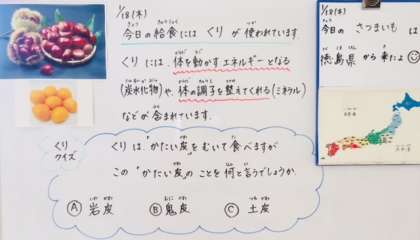 1/18(木)
今日の給食には くり が 使われています
くり には、体を動かす エネルギー となる
(炭水化物)や、体の調子を整えてくれる(ミネラル)
などが 含まれています。
くり
クイズ
くり は "かたい皮"をむいて 食べますが
この "かたい皮"のことを 何と言うでしょうか
Ⓐ 岩皮 Ⓑ 鬼皮 Ⓒ 土皮
1/18(木)
今日の さつまいも は
徳島県 から 来たよ